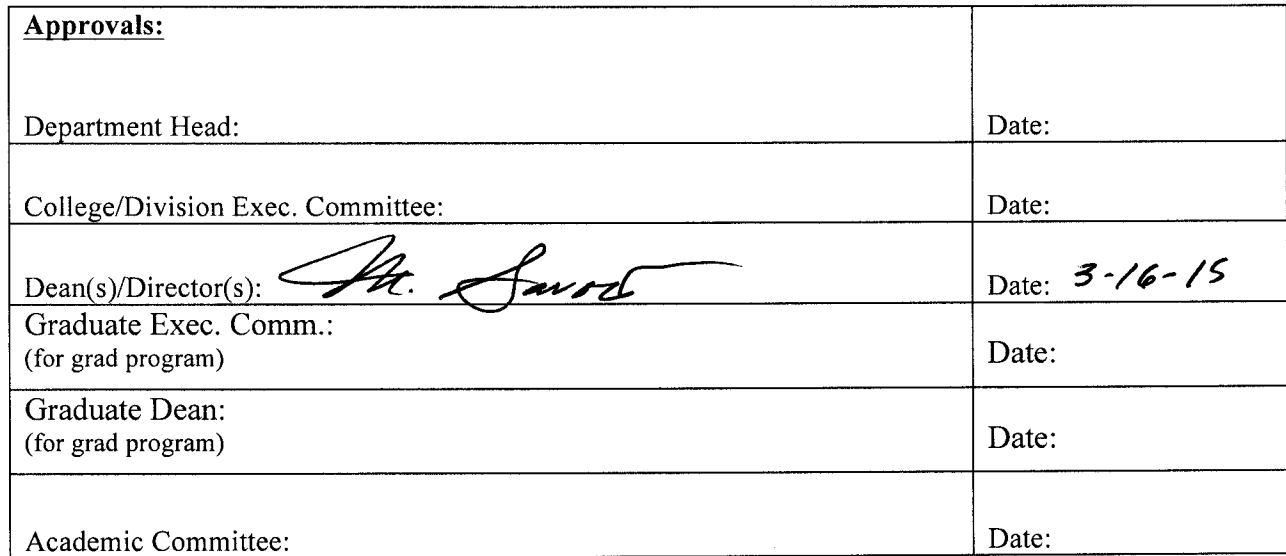 Approvals:
Department Head: Date:
College/Division Exec. Committee: Date:
Dean(s)/Director(s): Date: 3-16-15
Graduate Exec. Comm.:
(for grad program) Date:
Graduate Dean:
(for grad program) Date:
Academic Committee: Date: